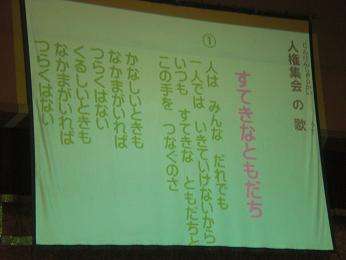 人権集会 の 歌
すてきなともだち
①
人は みんな だれでも
一人では いきていけないから
いつも すてきな ともだちと
この手を つなぐのさ
かなしいときも
なかまがいれば
つらくはない
くるしいときも
なかまがいれば
つらくはない